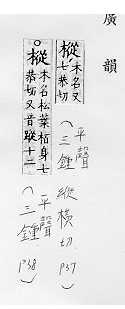 廣韻
樅木名又七恭切
平聲
(三鍾
縱横切
P37)
。樅木名松葉栢身七恭切又音蹤十二
平聲
(三鍾
P38)